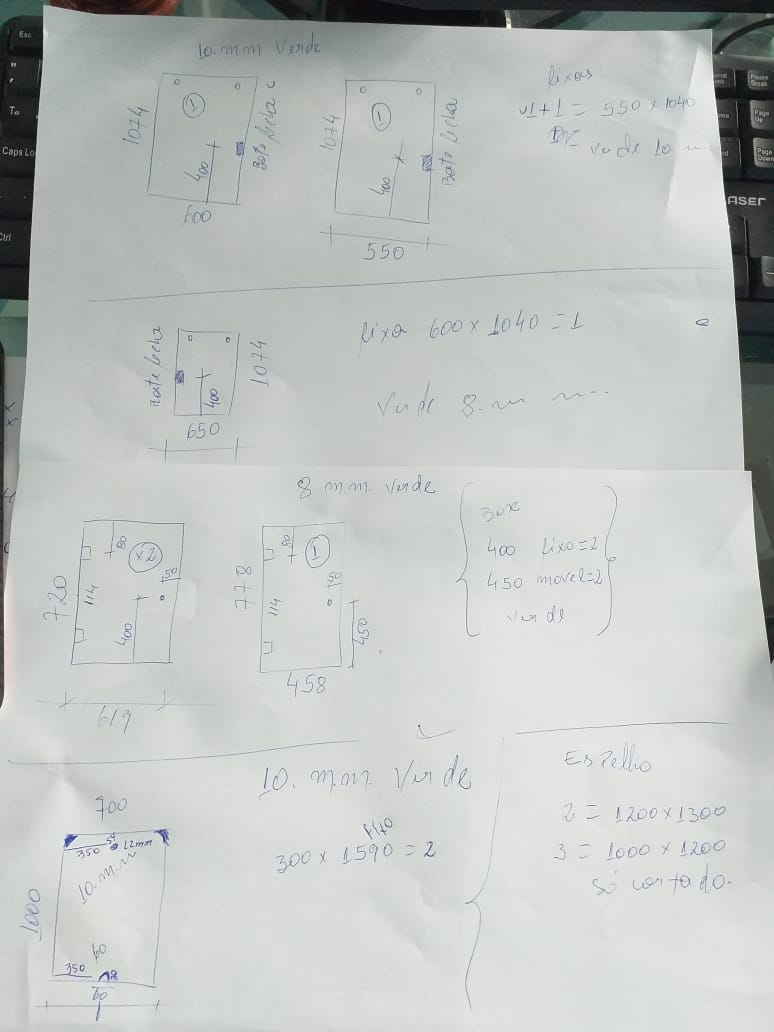 10.mm Verde
1074
1
400
Bate fecha
600
1074
1
400
Bate fecha
550
fixas
1+1 = 550 x 1040
Verde 10 m
Bate fecha
400
1074
650
fixa 600 x 1040 = 1
Verde 8.m m...
8 m.m. Verde
720
80
x2
114
50
400
619
778
80
1
114
50
450
458
Box
400 fixo=2
450 movel=2
Verde
10. m.m. Verde
700
350
12mm
10.m.m
1000
60
350
60
fixo
300 x 1590 = 2
Espelho
2 = 1200x1300
3 = 1000 x 1200
Só cortado.
Esc
Caps Lo
Ctrl
Pause
Break
Page
Up
Page
Down
ASER